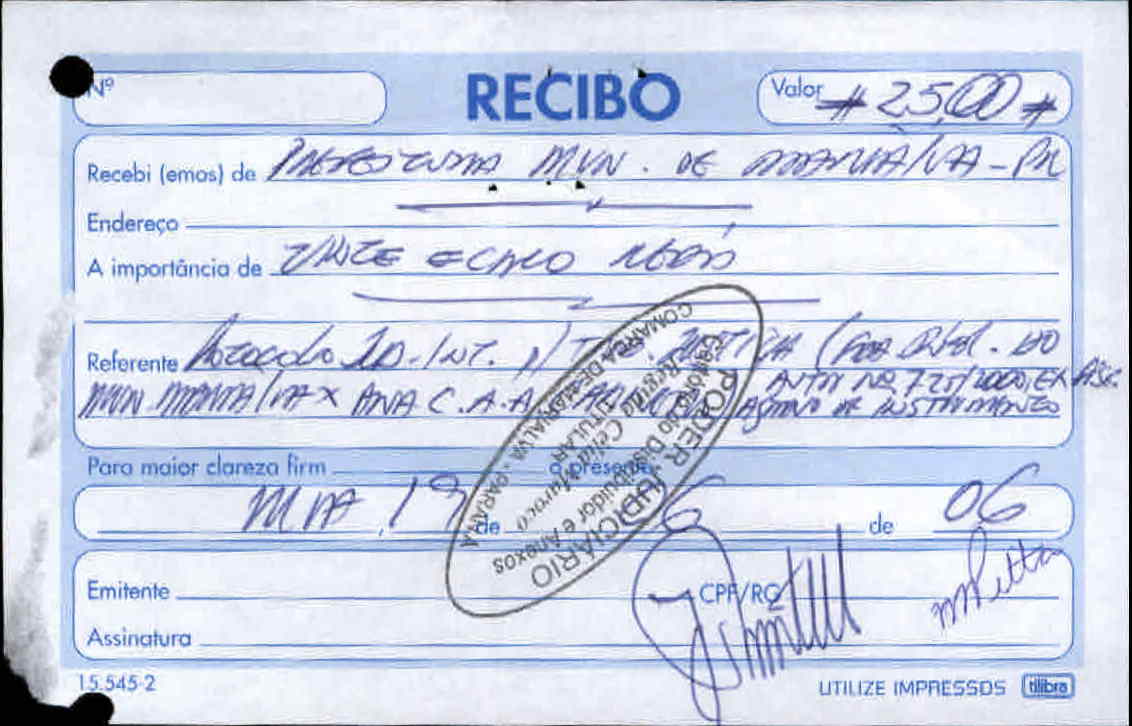 Nº
RECIBO
Valor # 25,00 #
Recebi (emos) de PREFEITURA MUN. DE MARIALVA - PR
Endereço
A importância de VINTE E CINCO REAIS
Referente Protocolo AO. INT. P/ TRIB. JUSTIÇA
MUN. MARIALVA X ANA C. A. A.
AUTOS Nº 725/2000, EX.
AGRAVO DE INSTRUMENTO
Para maior clareza firm o presente
MVA, 19 de 6 de 06
Emitente CPF/RG
Assinatura
PODER JUDICIÁRIO
Cartório do Distribuidor e Anexos
Celia
TITULAR
COMARCA DE MARIALVA - PARANÁ
15.545-2
UTILIZE IMPRESSOS tilibra